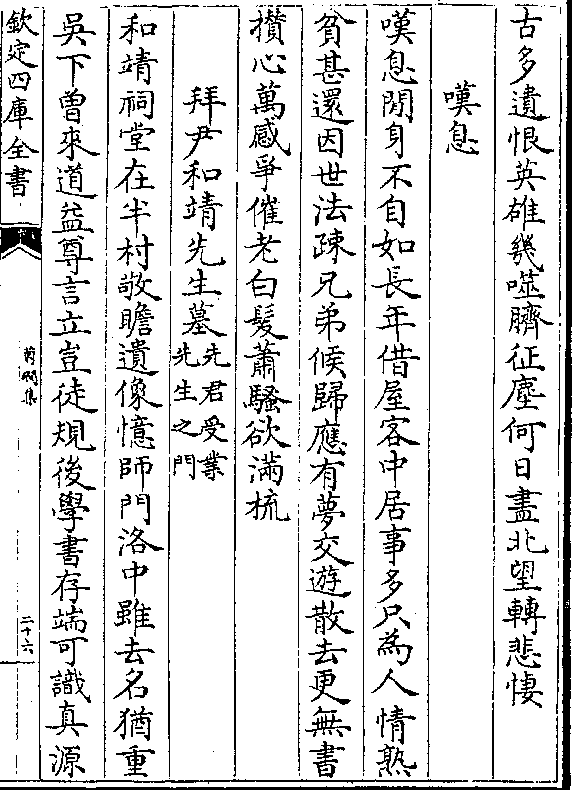 古多遺恨英雄幾噬臍征塵何日盡北望轉悲悽
嘆息
嘆息閒身不自如長年借屋客中居事多只為人情熟
貧甚還因世法疎兄弟候歸應有夢交遊散去更無書
攅心萬感爭催老白髮蕭騷欲滿梳
拜尹和靖先生墓先君受業
先生之門
和靖祠堂在半村敬瞻遺像憶師門洛中雖去名猶重
吳下曽來道益尊言立豈徒規後學書存端可識真源
欽定四庫全書
菊磵集
二十六